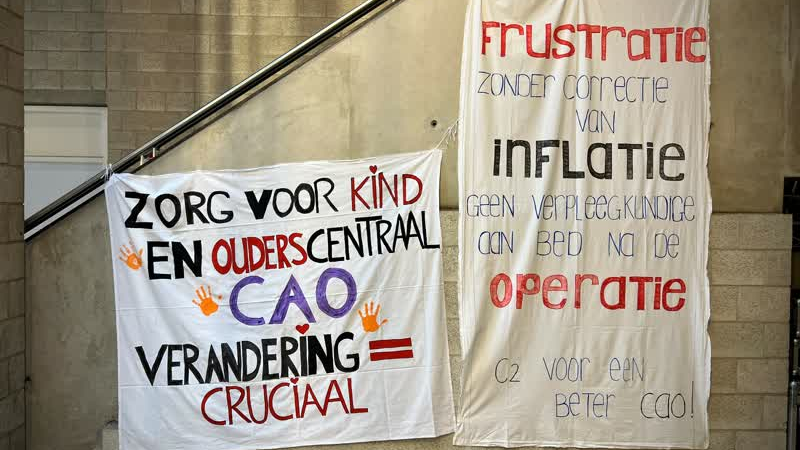 ZORG VOOR KIND
EN OUDERS CENTRAAL
CAO
VERANDERING =
CRUCIAAL
FRUSTRATIE
ZONDER CORRECTIE
VAN
INFLATIE
GEEN VERPLEEGKUNDIGE
AAN BED NA DE
OPERATIE
C2 VOOR EEN
BETER CAO!